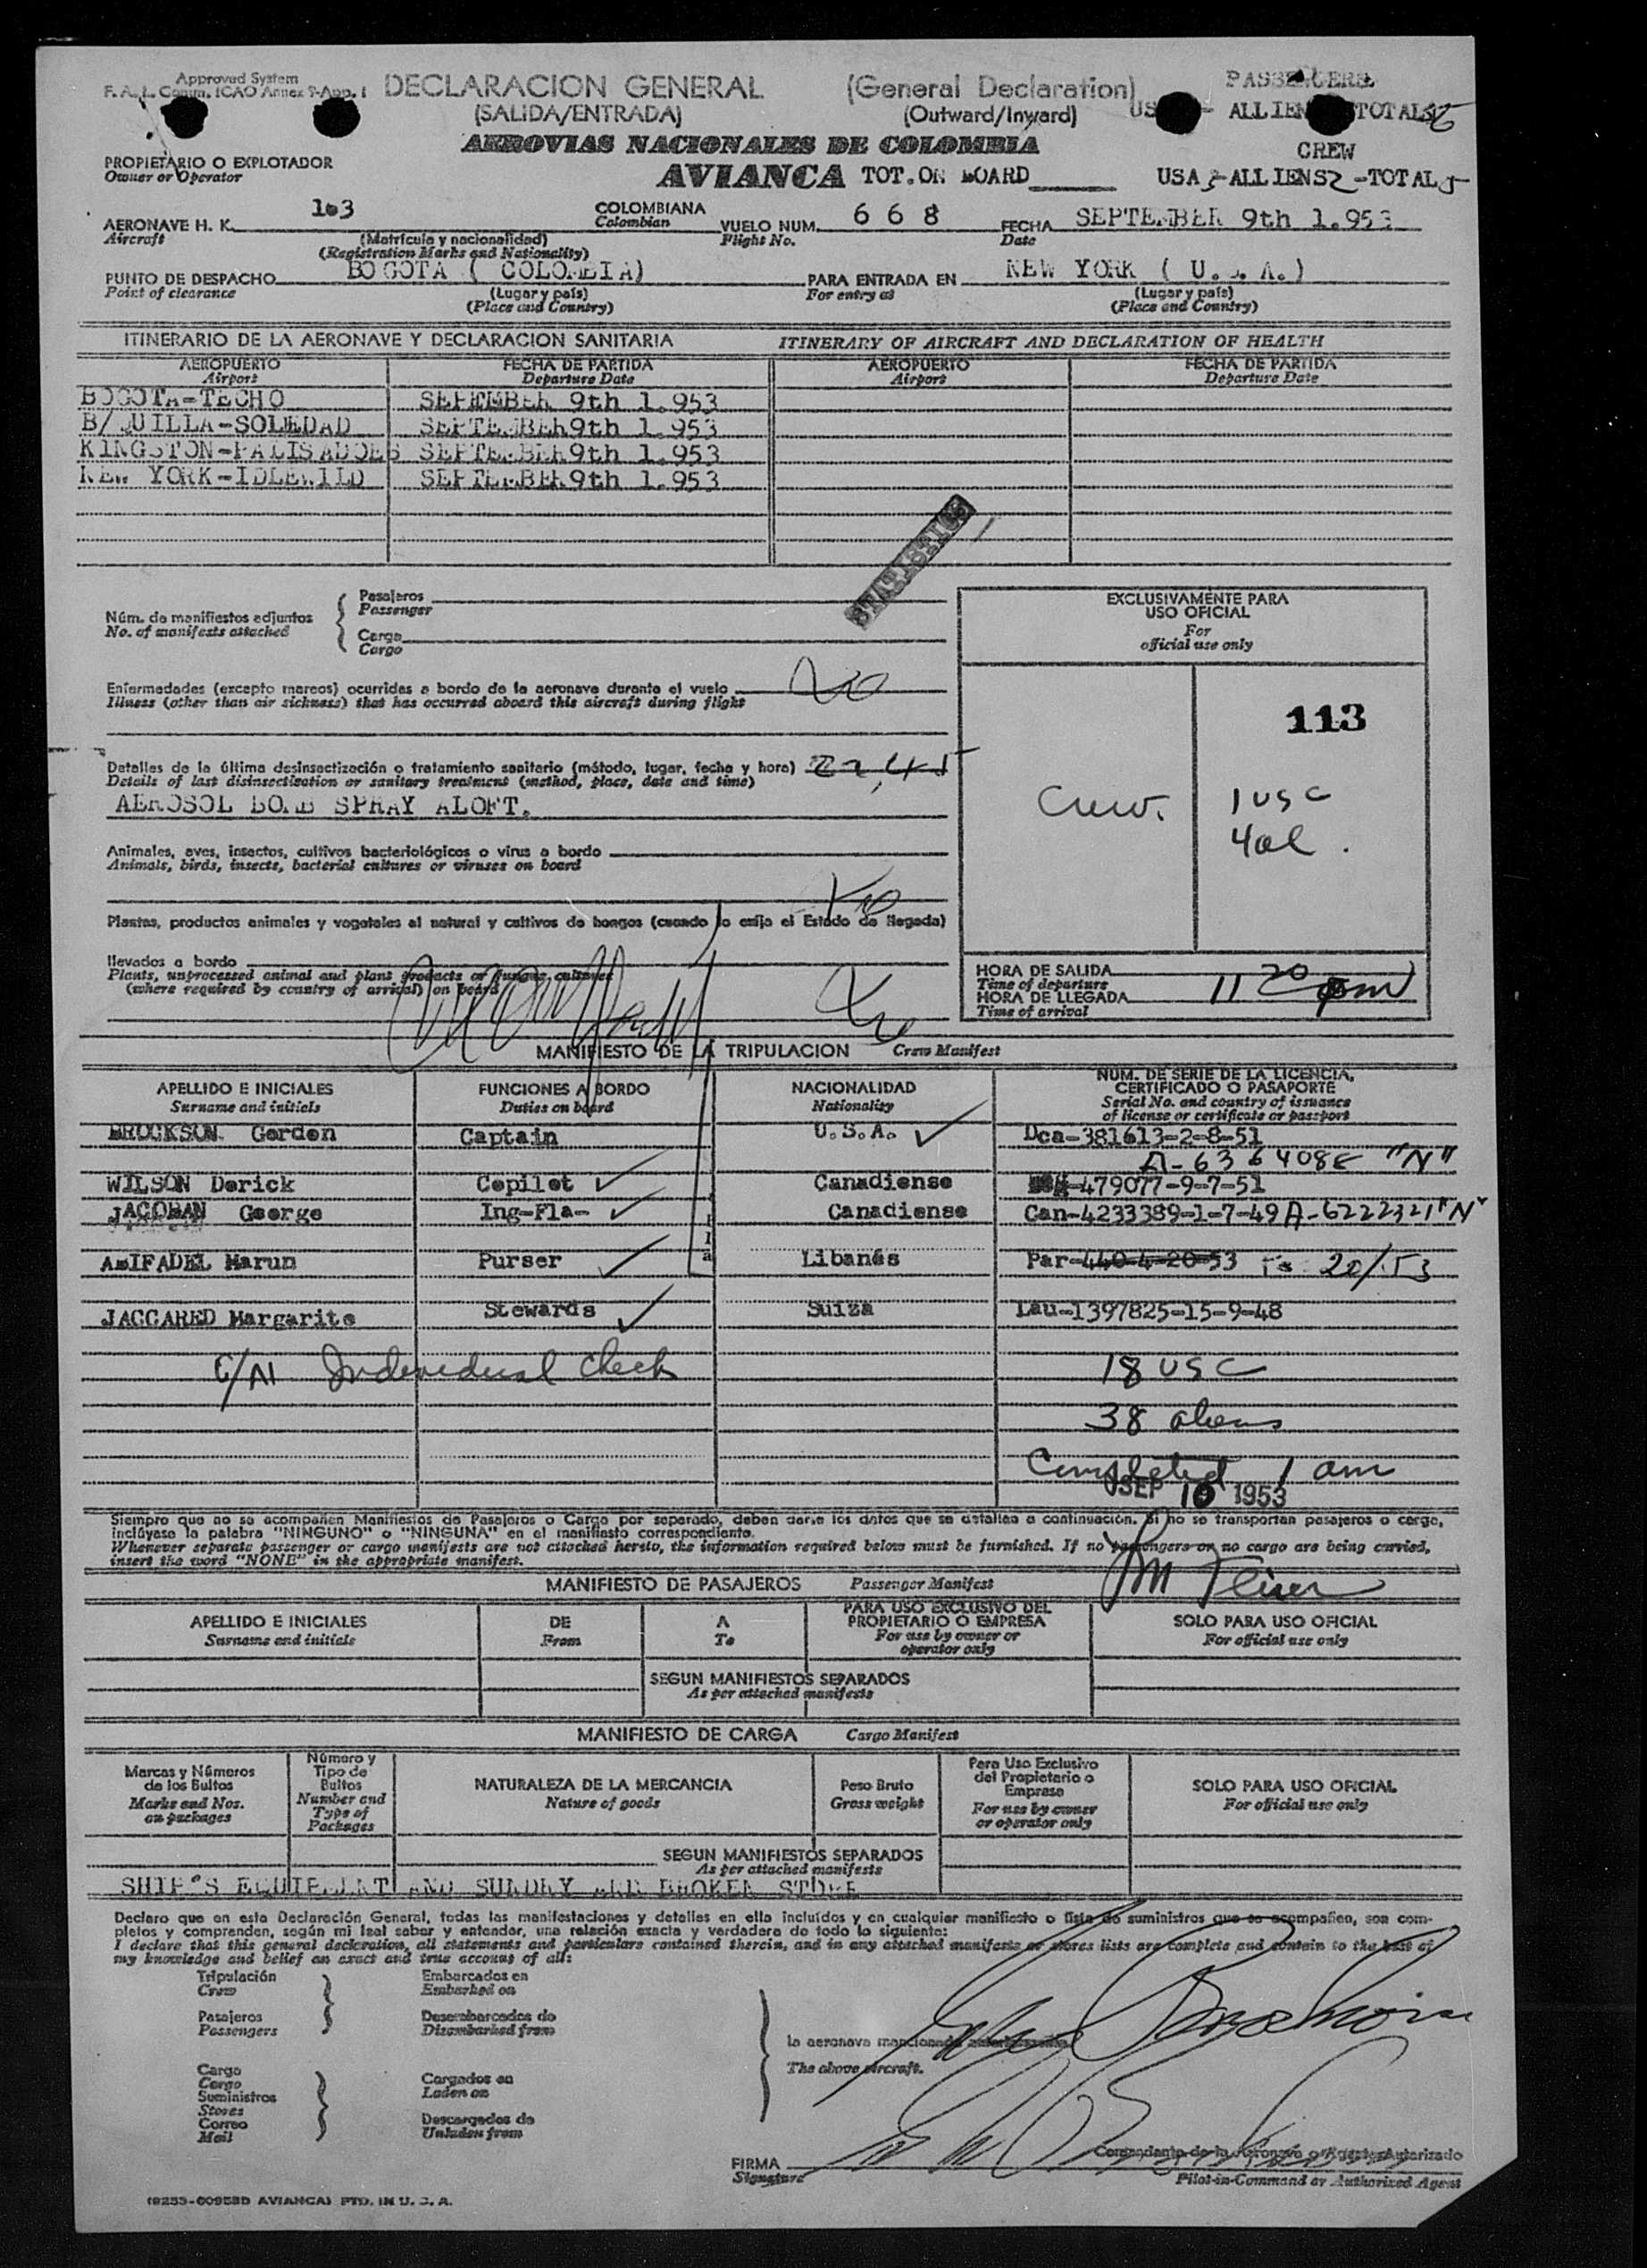 Approved System
F. A. L. Comm. ICAO Annex 9-App. 1
DECLARACION GENERAL (General Declaration)
(SALIDA/ENTRADA) (Outward/Inward)
PASSENGERS
US - ALLIEN TOTAL
AEROVIAS NACIONALES DE COLOMBIA
CREW
PROPIETARIO O EXPLOTADOR
Owner or Operator
AVIANCA TOT.ON BOARD
USA -ALLIENS2-TOTAL 5
AERONAVE H. K. 103 COLOMBIANA VUELO NUM. 6 6 8 FECHA SEPTEMBER 9th 1.953
Aircraft (Matrícula y nacionalidad) Colombian Flight No. Date
(Registration Marks and Nationality)
PUNTO DE DESPACHO BOGOTA ( COLOMBIA) PARA ENTRADA EN NEW YORK ( U.S.A.)
Point of clearance (Lugar y país) For entry at (Lugar y país)
(Place and Country) (Place and Country)
ITINERARIO DE LA AERONAVE Y DECLARACION SANITARIA ITINERARY OF AIRCRAFT AND DECLARATION OF HEALTH
AEROPUERTO FECHA DE PARTIDA AEROPUERTO FECHA DE PARTIDA
Airport Departure Date Airport Departure Date
BOGOTA-TECHO SEPTEMBER 9th 1.953
B/QUILLA-SOLEDAD SEPTEMBER9th 1.953
KINGSTON-PALISADOES SEPTEMBER9th 1.953
NEW YORK-IDLEWILD SEPTEMBER9th 1.953
STATISTICS
Núm. de manifiestos adjuntos
No. of manifests attached
Pasajeros
Passenger
Carga
Cargo
EXCLUSIVAMENTE PARA
USO OFICIAL
For
official use only
Enfermedades (excepto mareos) ocurridas a bordo de la aeronave durante el vuelo No
Illness (other than air sickness) that has occurred aboard this aircraft during flight
113
Detalles de la última desinsectización o tratamiento sanitario (método, lugar, fecha y hora) 22,45
Details of last disinsectisation or sanitary treatment (method, place, date and time)
AEROSOL BOMB SPRAY ALOFT.
Crew. 1 usc
4 al.
Animales, aves, insectos, cultivos bacteriológicos o virus a bordo
Animals, birds, insects, bacterial cultures or viruses on board
No
Plantas, productos animales y vegetales al natural y cultivos de hongos (cuando lo exija el Estado de llegada)
llevados a bordo
Plants, unprocessed animal and plant products or fungus cultures
(where required by country of arrival) on board
No
HORA DE SALIDA
Time of departure
HORA DE LLEGADA 11 20 pm
Time of arrival
MANIFIESTO DE LA TRIPULACION Crew Manifest
APELLIDO E INICIALES FUNCIONES A BORDO NACIONALIDAD NUM. DE SERIE DE LA LICENCIA,
CERTIFICADO O PASAPORTE
Surname and initials Duties on board Nationality Serial No. and country of issuance
of license or certificate or passport
BROCKSON Gordon Captain U.S.A. Dca-381613-2-8-51
A-636408E "N"
WILSON Derick Copilot Canadiense -479077-9-7-51
JACOBAN George Ing-Fla- Canadiense Can-4233389-1-7-49 A-6222321 "N"
AMIFADEL Marun Purser Libanés Par-440-4-20-53 20/53
JACCARED Margarite Stewards Suiza Lau-1397825-15-9-48
Individual Check 18 USC
38 aliens
Completed 1 am
SEP 10 1953
Siempre que no se acompañen Manifiestos de Pasajeros o Carga por separado, deben darse los datos que se detallan a continuación. Si no se transportan pasajeros o carga,
inclúyase la palabra "NINGUNO" o "NINGUNA" en el manifiesto correspondiente.
Whenever separate passenger or cargo manifests are not attached hereto, the information required below must be furnished. If no passengers or no cargo are being carried,
insert the word "NONE" in the appropriate manifest.
MANIFIESTO DE PASAJEROS Passenger Manifest
APELLIDO E INICIALES DE A PARA USO EXCLUSIVO DEL
PROPIETARIO O EMPRESA SOLO PARA USO OFICIAL
Surname and initials From To For use by owner or
operator only For official use only
SEGUN MANIFIESTOS SEPARADOS
As per attached manifests
MANIFIESTO DE CARGA Cargo Manifest
Marcas y Números
de los Bultos
Marks and Nos.
on packages
Número y
Tipo de
Bultos
Number and
Type of
Packages
NATURALEZA DE LA MERCANCIA
Nature of goods
Peso Bruto
Gross weight
Para Uso Exclusivo
del Propietario o
Empresa
For use by owner
or operator only
SOLO PARA USO OFICIAL
For official use only
SEGUN MANIFIESTOS SEPARADOS
As per attached manifests
SHIP'S EQUIPMENT AND SUNDRY AND BROKEN STORE
Declaro que en esta Declaración General, todas las manifestaciones y detalles en ella incluídos y en cualquier manifiesto o lista de suministros que se acompañen, son com-
pletos y comprenden, según mi leal saber y entender, una relación exacta y verdadera de todo lo siguiente:
I declare that this general declaration, all statements and particulars contained therein, and in any attached manifests or stores lists are complete and contain to the best of
my knowledge and belief an exact and true account of all:
Tripulación
Crew
Embarcados en
Embarked on
Pasajeros
Passengers
Desembarcados de
Disembarked from
la aeronave mencionada
The above aircraft.
Carga
Cargo
Suministros
Stores
Correo
Mail
Cargados en
Laden on
Descargados de
Unladen from
FIRMA
Signature
Comandante de la Aeronave o Agente Autorizado
Pilot-in-Command or Authorized Agent
PTD. IN U. S. A.